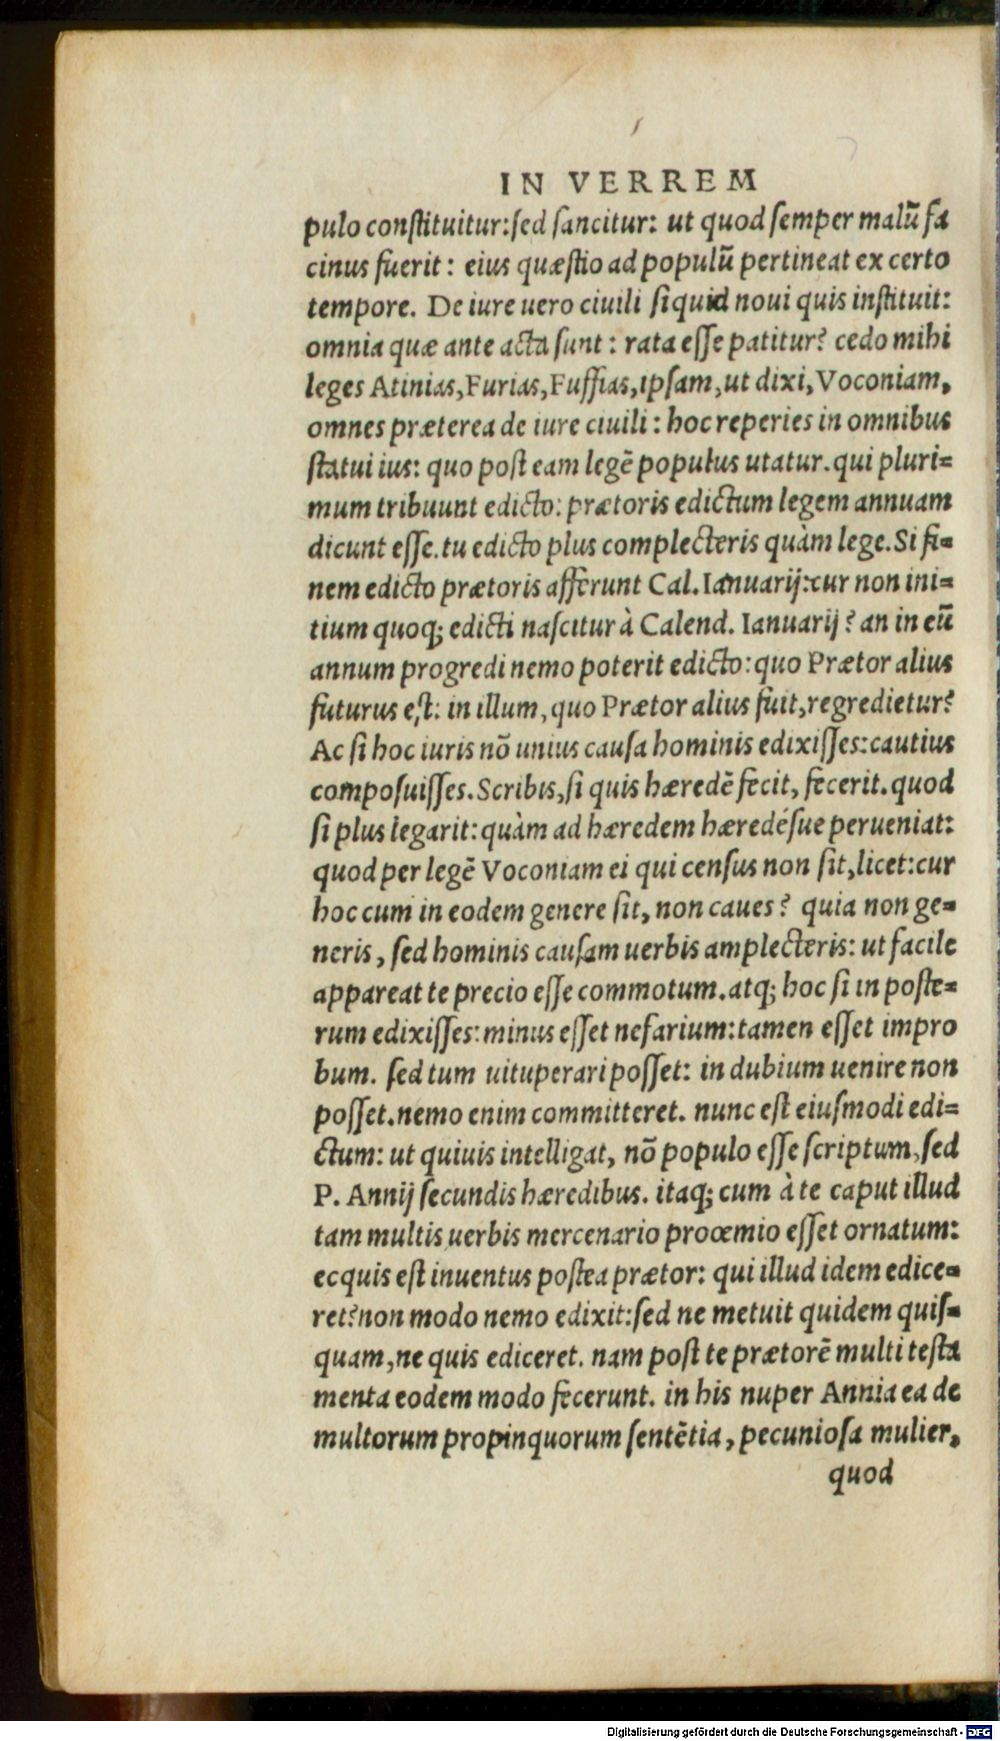 IN VERREM
pulo constituitur: sed sancitur: ut quod semper malū fa
cinus fuerit: eius quæstio ad populū pertineat ex certo
tempore. De iure uero ciuili siquid noui quis instituit:
omnia quæ ante acta sunt: rata esse patitur? cedo mihi
leges Atinias, Furias, Fuffias, ipsam, ut dixi, Voconiam,
omnes præterea de iure ciuili: hoc reperies in omnibus
statui ius: quo post eam legē populus utatur. qui pluri=
mum tribuunt edicto: prætoris edictum legem annuam
dicunt esse. tu edicto plus complecteris quàm lege. Si fi=
nem edicto prætoris afferunt Cal. Ianuarij: cur non ini=
tium quoq; edicti nascitur à Calend. Ianuarij? an in eū
annum progredi nemo poterit edicto: quo Prætor alius
futurus est: in illum, quo Prætor alius fuit, regredietur?
Ac si hoc iuris nō unius causa hominis edixisses: cautius
composuisses. Scribis, si quis hæredē fecit, fecerit. quod
si plus legarit: quàm ad hæredem hæredésue perueniat:
quod per legē Voconiam ei qui census non sit, licet: cur
hoc cum in eodem genere sit, non caues? quia non ge=
neris, sed hominis causam uerbis amplecteris: ut facile
appareat te precio esse commotum. atq; hoc si in poste=
rum edixisses: minus esset nefarium: tamen esset impro
bum. sed tum uituperari posset: in dubium uenire non
posset. nemo enim committeret. nunc est eiusmodi edi=
ctum: ut quiuis intelligat, nō populo esse scriptum, sed
P. Annij secundis hæredibus. itaq; cum à te caput illud
tam multis uerbis mercenario procemio esset ornatum:
ecquis est inuentus postea prætor: qui illud idem edice=
ret? non modo nemo edixit: sed ne metuit quidem quis=
quam, ne quis ediceret. nam post te prætorē multi testa
menta eodem modo fecerunt. in his nuper Annia ea de
multorum propinquorum sentētia, pecuniosa mulier,
quod
Digitalisierung gefördert durch die Deutsche Forschungsgemeinschaft - DFG